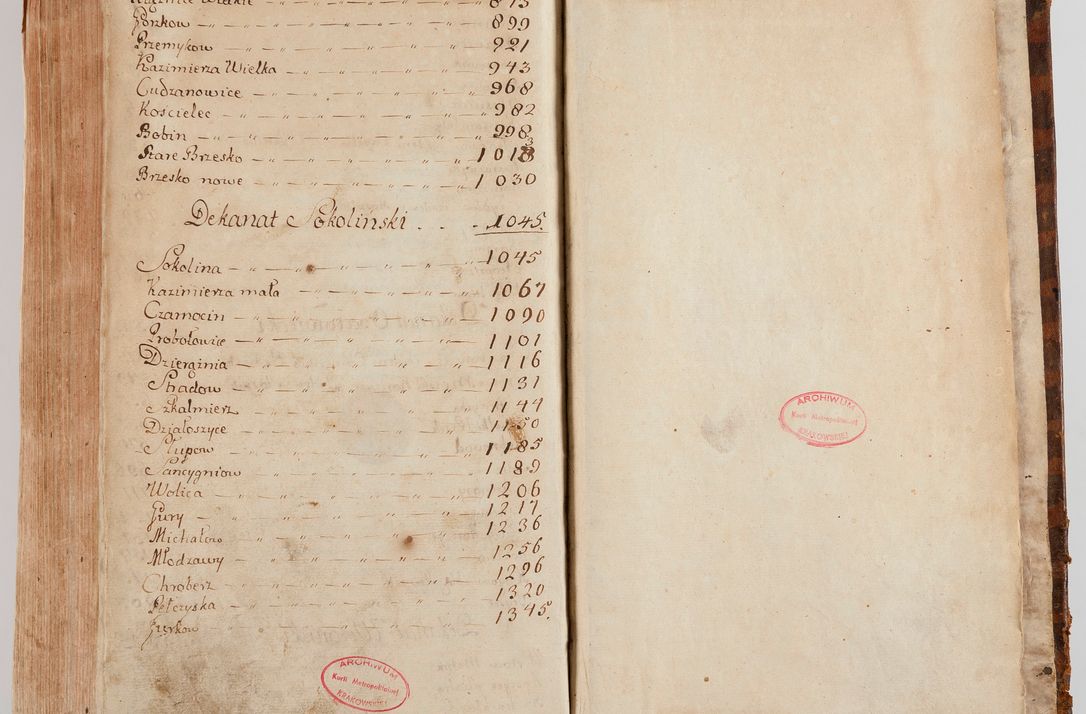 Wielkie 875
Gorzkow 899
Przemykow 921
Kazimierza Wielka 943
Cudzanowice 968
Koscielec 982
Bobin 998
Stare Brzesko 1013
Brzesko nowe 1030
Dekanat Sokolinski . . 1045.
Sokolina 1045
Kazimierza mała 1067
Czarnocin 1090
Probołowice 1101
Dzierginia 1116
Stradow 1131
Szkalmierz 1144
Działoszyce 1150
Słupow 1185
Sancygniow 1189
Wolica 1206
Gury 1217
Michałow 1236
Młodzawy 1256
Chroberz 1296
Pełczyska 1320
Jurkow 1345.
ARCHIWUM
Kurii Metropolitalnej
KRAKOWSKIEJ
ARCHIWUM
Kurii Metropolitalnej
KRAKOWSKIEJ